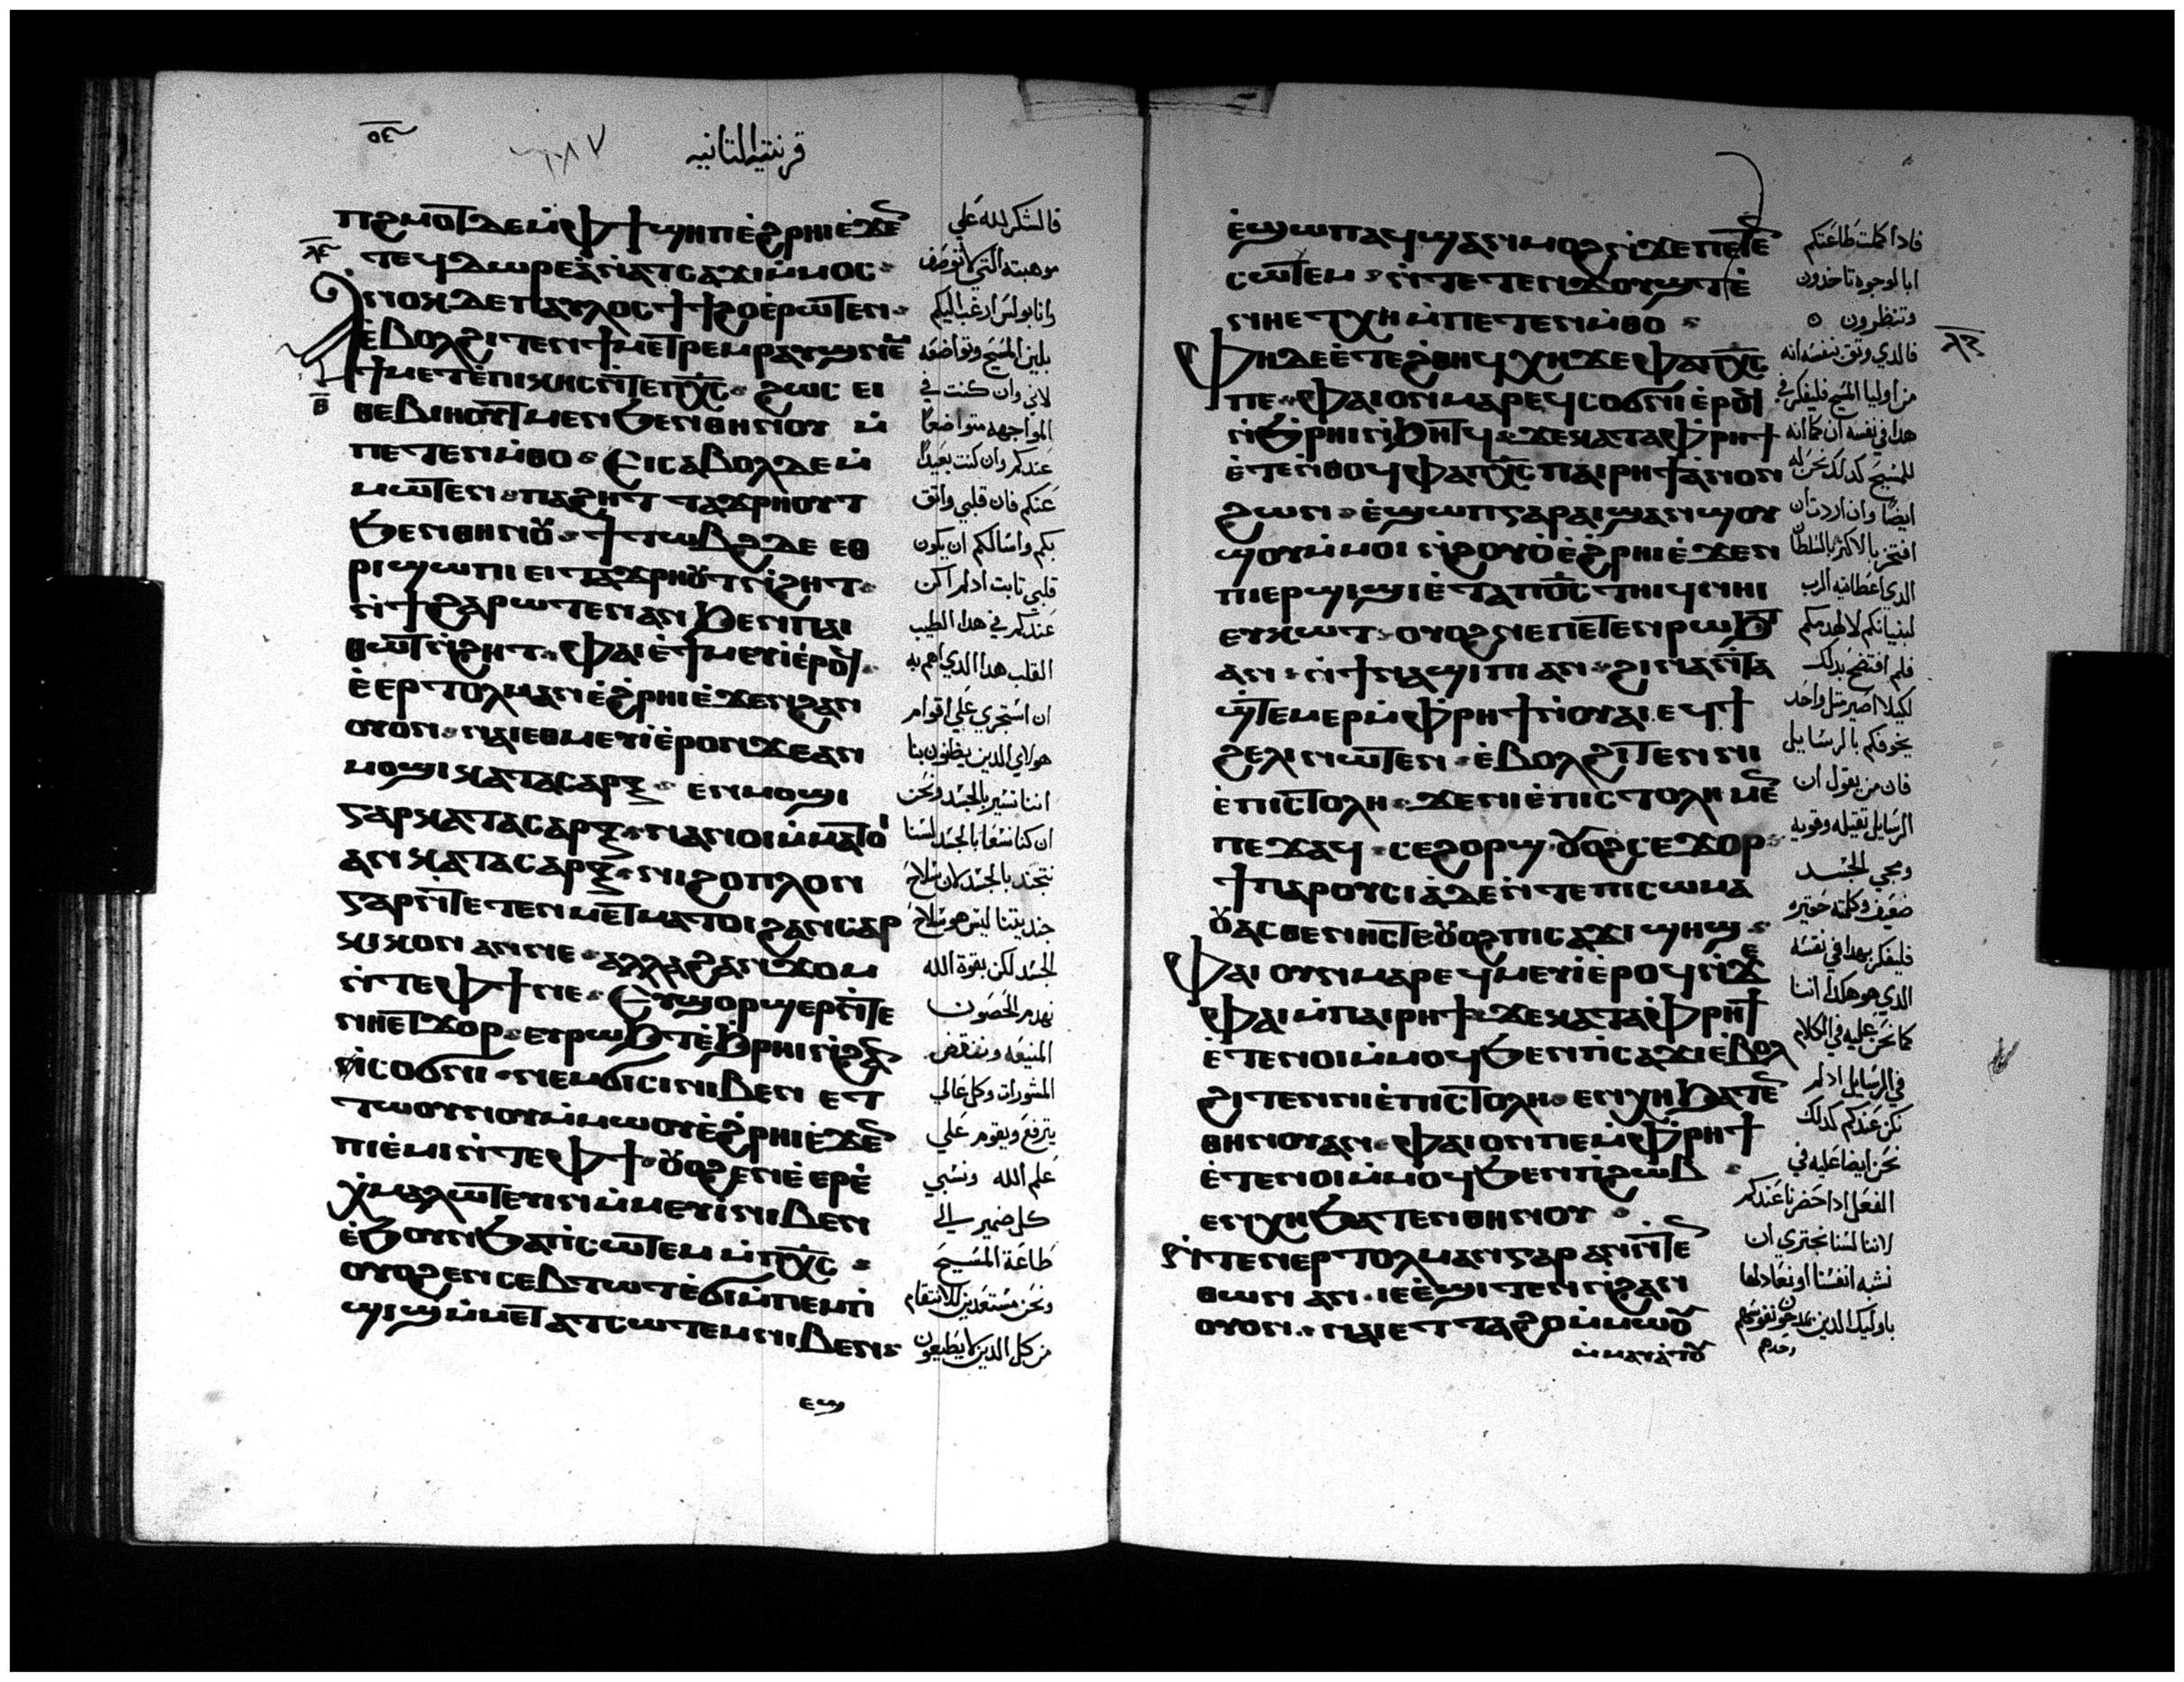 قرنتيه التانيه
ⲡϩⲙⲟⲧ ⲇⲉ ⲙ̀ⲫϯ ϣⲏⲡ ⲉ̀ϩⲣⲏⲓ ⲉ̀ϫⲉⲛ
ⲧⲉϥⲇⲱⲣⲉⲁ̀ ⲛ̀ⲁⲧⲥⲁϫⲓ ⲙ̀ⲙⲟⲥ
ⲁⲛⲟⲕ ⲇⲉ ⲡⲁⲩⲗⲟⲥ ϯϯϩⲟ ⲉ̀ⲣⲱⲧⲉⲛ
ⲉ̀ⲃⲟⲗϩⲓⲧⲉⲛ ϯⲙⲉⲧⲣⲉⲙⲣⲁⲩϣ ⲛⲉⲙ
ϯⲙⲉⲧⲉ̀ⲡⲓⲕⲏⲥ ⲛ̀ⲧⲉ ⲡⲭ̅ⲥ ϩⲱⲥ ⲉⲓ
ⲑⲉⲃⲓⲏⲟⲩⲧ ⲙⲉⲛ ϧⲉⲛⲑⲏⲛⲟⲩ ⲙ̀
ⲡⲉⲧⲉⲛⲙ̀ⲑⲟ ⲉⲓⲥⲁⲃⲟⲗ ⲇⲉ ⲙ̀
ⲙⲱⲧⲉⲛ ⲡⲁϩⲏⲧ ⲧⲁϫⲣⲏⲟⲩⲧ
ϧⲉⲛⲑⲏⲛⲟⲩ ϯⲧⲱⲃϩ ⲇⲉ ⲉⲑ
ⲣⲓϣⲱⲡⲓ ⲉⲓⲧⲁϫⲣⲏⲟⲩⲧ ⲛ̀ϩⲏⲧ
ⲛ̀ϯϩⲁⲣⲱⲧⲉⲛ ⲁⲛ ϧⲉⲛⲡⲁⲓ
ⲑⲱⲧ ⲛ̀ϩⲏⲧ ⲫⲁⲓ ⲉ̀ϯⲙⲉⲩⲓ ⲉ̀ⲣⲟϥ
ⲉ̀ⲉⲣⲧⲟⲗⲙⲁⲛ ⲉ̀ϩⲣⲏⲓ ⲉ̀ϫⲉⲛ ϩⲁⲛ
ⲟⲩⲟⲛ ⲛⲁⲓ ⲉⲑⲙⲉⲩⲓ ⲉ̀ⲣⲟⲛ ϫⲉ ⲁⲛ
ⲙⲟϣⲓ ⲕⲁⲧⲁ ⲥⲁⲣⲝ ⲉⲛⲙⲟϣⲓ
ⲅⲁⲣ ⲕⲁⲧⲁ ⲥⲁⲣⲝ ⲛⲁⲛⲟⲓ ⲙ̀ⲙⲁⲧⲟⲓ
ⲁⲛ ⲕⲁⲧⲁ ⲥⲁⲣⲝ ⲛⲓϩⲟⲡⲗⲟⲛ
ⲅⲁⲣ ⲛ̀ⲧⲉ ⲧⲉⲛⲙⲉⲧⲙⲁⲧⲟⲓ ϩⲁⲛⲥⲁⲣ
ⲕⲓⲕⲟⲛ ⲁⲛ ⲛⲉ ⲁⲗⲗⲁ ϩⲁⲛϫⲟⲙ
ⲛ̀ⲧⲉ ⲫϯ ⲛⲉ ⲉⲩϣⲟⲣϣⲉⲣ ⲛ̀ⲧⲉ
ⲛⲏⲉⲧϫⲟⲣ ⲉⲩⲣⲱϧⲧ ⲉ̀ϧⲣⲏⲓ ⲛ̀ϩⲁⲛ
ⲥⲟϭⲛⲓ ⲛⲉⲙ ϭⲓⲥⲓ ⲛⲓⲃⲉⲛ ⲉⲧ
ⲧⲱⲟⲩⲛⲟⲩ ⲙ̀ⲙⲱⲟⲩ ⲉ̀ϩⲣⲏⲓ ⲉ̀ϫⲉⲛ
ⲡⲓⲉ̀ⲙⲓ ⲛ̀ⲧⲉ ⲫϯ ⲟⲩⲟϩ ⲉⲛⲉ̀ⲉⲣⲉ̀
ⲭⲙⲁⲗⲱⲧⲉⲩⲓⲛ ⲙ̀ⲙⲉⲩⲓ ⲛⲓⲃⲉⲛ
ⲉ̀ϧⲟⲩⲛ ϧⲁ ⲡⲥⲱⲧⲉⲙ ⲙ̀ⲡⲭ̅ⲥ
ⲟⲩⲟϩ ⲉⲛⲥⲉⲃⲧⲱⲧ ⲉ̀ϭⲓ ⲙ̀ⲡⲉⲙⲡ̀
ϣⲓϣ ⲙ̀ⲙⲉⲧⲁⲧⲥⲱⲧⲉⲙ ⲛⲓⲃⲉⲛ
ⲉϣ
فالشكر لله على
موهبته التي لا توصف
وانا بولس ارغب اليكم
بلين المسيح وتواضعه
لاني وان كنت في
المواجهه متواضعا
عندكم وان كنت بعيدا
عنكم فان قلبي واثق
بكم واسالكم ان يكون
قلبي ثابت اد لم اكن
عندكم في هدا الطيب
القلب هدا الدي اهم به
ان استجري على اقوام
هولاي الدين يظنون بنا
اننا نسير بالجسد ونحن
ان كنا نسعا بالجسد لسنا
نتجند بالجسد لان سلاح
جنديتنا ليس هو سلاح
الجسد لكن بقوة الله
نهدم الحصون
المنيعه وننقض
المشورات وكل عالي
يترفع ويقوم على
علم الله ونسبي
كل ضمير الى
طاعة المسيح
ونحن مستعدين للانتقام
من كل الدين لا يطيعون
ⲉ̀ϣⲱⲡ ⲁϥϣⲁⲛⲙⲟϩ ⲛ̀ϫⲉ ⲡⲉⲧⲉⲛ
ⲥⲱⲧⲉⲙ ⲛ̀ⲧⲉⲧⲉⲛϫⲟⲩϣⲧ ⲉ̀
ⲛⲏⲉⲧⲭⲏ ⲙ̀ⲡⲉⲧⲉⲛⲙ̀ⲑⲟ
ⲫⲏ ⲇⲉ ⲉ̀ⲧⲉ ϩⲑⲏϥ ⲭⲏ ϫⲉ ⲫⲁ ⲡⲭ̅ⲥ
ⲡⲉ ⲫⲁⲓ ⲟⲛ ⲙⲁⲣⲉϥⲥⲟϭⲛⲓ ⲉ̀ⲣⲟϥ
ⲛ̀ϧⲣⲏⲓ ⲛ̀ϧⲏⲧϥ ϫⲉ ⲕⲁⲧⲁ ⲫⲣⲏϯ
ⲉ̀ⲧⲉ ⲛ̀ⲑⲟϥ ⲫⲁ ⲡⲭ̅ⲥ ⲡⲁⲓⲣⲏϯ ⲁ̀ⲛⲟⲛ
ϩⲱⲛ ⲉ̀ϣⲱⲡ ⲅⲁⲣ ⲁⲓϣⲁⲛϣⲟⲩ
ϣⲟⲩ ⲙ̀ⲙⲟⲓ ⲛ̀ϩⲟⲩⲟ̀ ⲉ̀ϩⲣⲏⲓ ⲉ̀ϫⲉⲛ
ⲡⲓⲉⲣϣⲓϣⲓ ⲉ̀ⲧⲁ ⲡⲟ̅ⲥ ⲧⲏⲓϥ ⲛⲏⲓ
ⲉⲩⲕⲱⲧ ⲟⲩⲟϩ ⲛⲉⲡⲉⲧⲉⲛⲣⲱϧⲧ
ⲁⲛ ⲛ̀ϯⲛⲁϣⲓⲡⲓ ⲁⲛ ϩⲓⲛⲁ ⲛ̀ⲧⲁ
ϣ̀ⲧⲉⲙⲉⲣ ⲙ̀ⲫⲣⲏϯ ⲛ̀ⲟⲩⲁⲓ ⲉϥϯ
ϩⲉⲗⲓ ⲛⲱⲧⲉⲛ ⲉ̀ⲃⲟⲗϩⲓⲧⲉⲛ ⲛⲓ
ⲉ̀ⲡⲓⲥⲧⲟⲗⲏ ϫⲉ ⲛⲓⲉ̀ⲡⲓⲥⲧⲟⲗⲏ ⲙⲉⲛ
ⲡⲉϫⲁϥ ⲥⲉϩⲟⲣϣ ⲟⲩⲟϩ ⲥⲉϫⲟⲣ
ϯⲡⲁⲣⲟⲩⲥⲓⲁ̀ ⲇⲉ ⲛ̀ⲧⲉ ⲡⲓⲥⲱⲙⲁ
ⲟⲩⲁⲥⲑⲉⲛⲏⲥ ⲧⲉ ⲟⲩⲟϩ ⲡⲓⲥⲁϫⲓ ϣⲏϣ
ⲫⲁⲓ ⲟⲩⲛ ⲙⲁⲣⲉϥⲙⲉⲩⲓ ⲉ̀ⲣⲟϥ ⲛ̀ϫⲉ
ⲫⲁⲓ ⲙ̀ⲡⲁⲓⲣⲏϯ ϫⲉ ⲕⲁⲧⲁ ⲫⲣⲏϯ
ⲉ̀ⲧⲉⲛⲟⲓ ⲙ̀ⲙⲟϥ ϧⲉⲛ ⲡⲥⲁϫⲓ ⲉ̀ⲃⲟⲗ
ϩⲓⲧⲉⲛ ⲛⲓⲉ̀ⲡⲓⲥⲧⲟⲗⲏ ⲉⲛⲭⲏ ϧⲁⲧⲉⲛ
ⲑⲏⲛⲟⲩ ⲁⲛ ⲫⲁⲓ ⲟⲛ ⲡⲉ ⲙ̀ⲫⲣⲏϯ
ⲉ̀ⲧⲉⲛⲟⲓ ⲙ̀ⲙⲟϥ ϧⲉⲛ ⲡϩⲱⲃ
ⲉⲛⲭⲏ ϧⲁⲧⲉⲛⲑⲏⲛⲟⲩ
ⲛ̀ⲧⲉⲛⲉⲣⲧⲟⲗⲙⲁⲛ ⲅⲁⲣ ⲁⲛ ⲛ̀ⲧⲉ
ⲑⲱⲛ ⲁⲛ ⲓⲉ ⲉ̀ϣⲓⲧⲉⲛ ⲛ̀ϩⲁⲛ
ⲟⲩⲟⲛ ⲛⲁⲓ ⲉⲧⲧⲁϩⲟ ⲙ̀ⲙⲱⲟⲩ
ⲙ̀ⲙⲁⲩⲁⲧⲟⲩ
فادا كملت طاعتكم
ابالوجوه تاخدون
وتنظرون
فالدي وثق بنفسه انه
من اوليا المسيح فليفكر في
هدا في نفسه ان كما انه
للمسيح كدلك نحن له
ايضا وان اردت ان
افتخر بالاكثر بالسلطان
الدي اعطانيه الرب
لبنيانكم لا لهدمكم
فلم افتضح بدلك
لكيلا اصير مثل واحد
يخوفكم بالرسايل
فان من يقول ان
الرسايل ثقيله وقويه
ومجي الجسد
ضعيف وكلمته حقيره
فليفكر بهدا في نفسه
الدي هو هكدا اننا
كما نحن عليه في الكلام
في الرسايل اد لم
نكن عندكم كدلك
نحن ايضا عليه في
الفعل ادا حضرنا عندكم
لاننا لسنا نجتري ان
نشبه انفسنا او نعادلها
باوليك الدين يمدحون نفوسهم
وحدهم